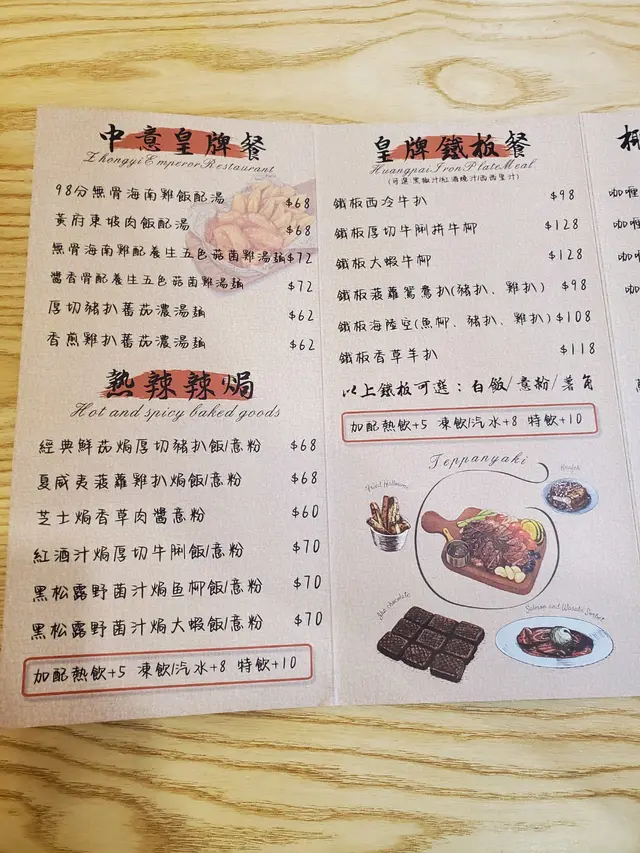 中意皇牌餐
Zhongyi Emperor Restaurant
98分無骨海南雞飯配湯 $68
黃府東坡肉飯配湯 $68
無骨海南雞配養生五色菇菌雞湯麵 $72
醬香骨配養生五色菇菌雞湯麵 $72
厚切豬扒蕃茄濃湯麵 $62
香煎雞扒蕃茄濃湯麵 $62
熱辣辣焗
Hot and spicy baked goods
經典鮮茄焗厚切豬扒飯/意粉 $68
夏威夷菠蘿雞扒焗飯/意粉 $68
芝士焗香草肉醬意粉 $60
紅酒汁焗厚切牛脷飯/意粉 $70
黑松露野菌汁焗魚柳飯/意粉 $70
黑松露野菌汁焗大蝦飯/意粉 $70
加配熱飲+5 凍飲/汽水+8 特飲+10
皇牌鐵板餐
Huangpai Iron Plate Meal
(可選:黑椒汁/紅酒燒汁/西西里汁)
鐵板西冷牛扒 $98
鐵板厚切牛脷拼牛柳 $128
鐵板大蝦牛柳 $128
鐵板菠蘿鴛鴦扒(豬扒、雞扒) $98
鐵板海陸空(魚柳、豬扒、雞扒) $108
鐵板香草羊扒 $118
以上鐵板可選：白飯/意粉/薯角
加配熱飲+5 凍飲/汽水+8 特飲+10
Teppanyaki
Fried Halloumi
Salmon and Wasabi Sorbet
咖喱
咖喱
咖
咖